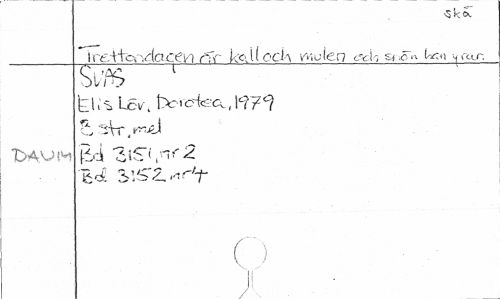 skä
Trettondagen är kall och mulen och snön han yrar.
SVAS
Elis Löv, Dorotea, 1979
8 str, mel
DAUM Bd 3151, nr 2
Bd 3152, nr 4